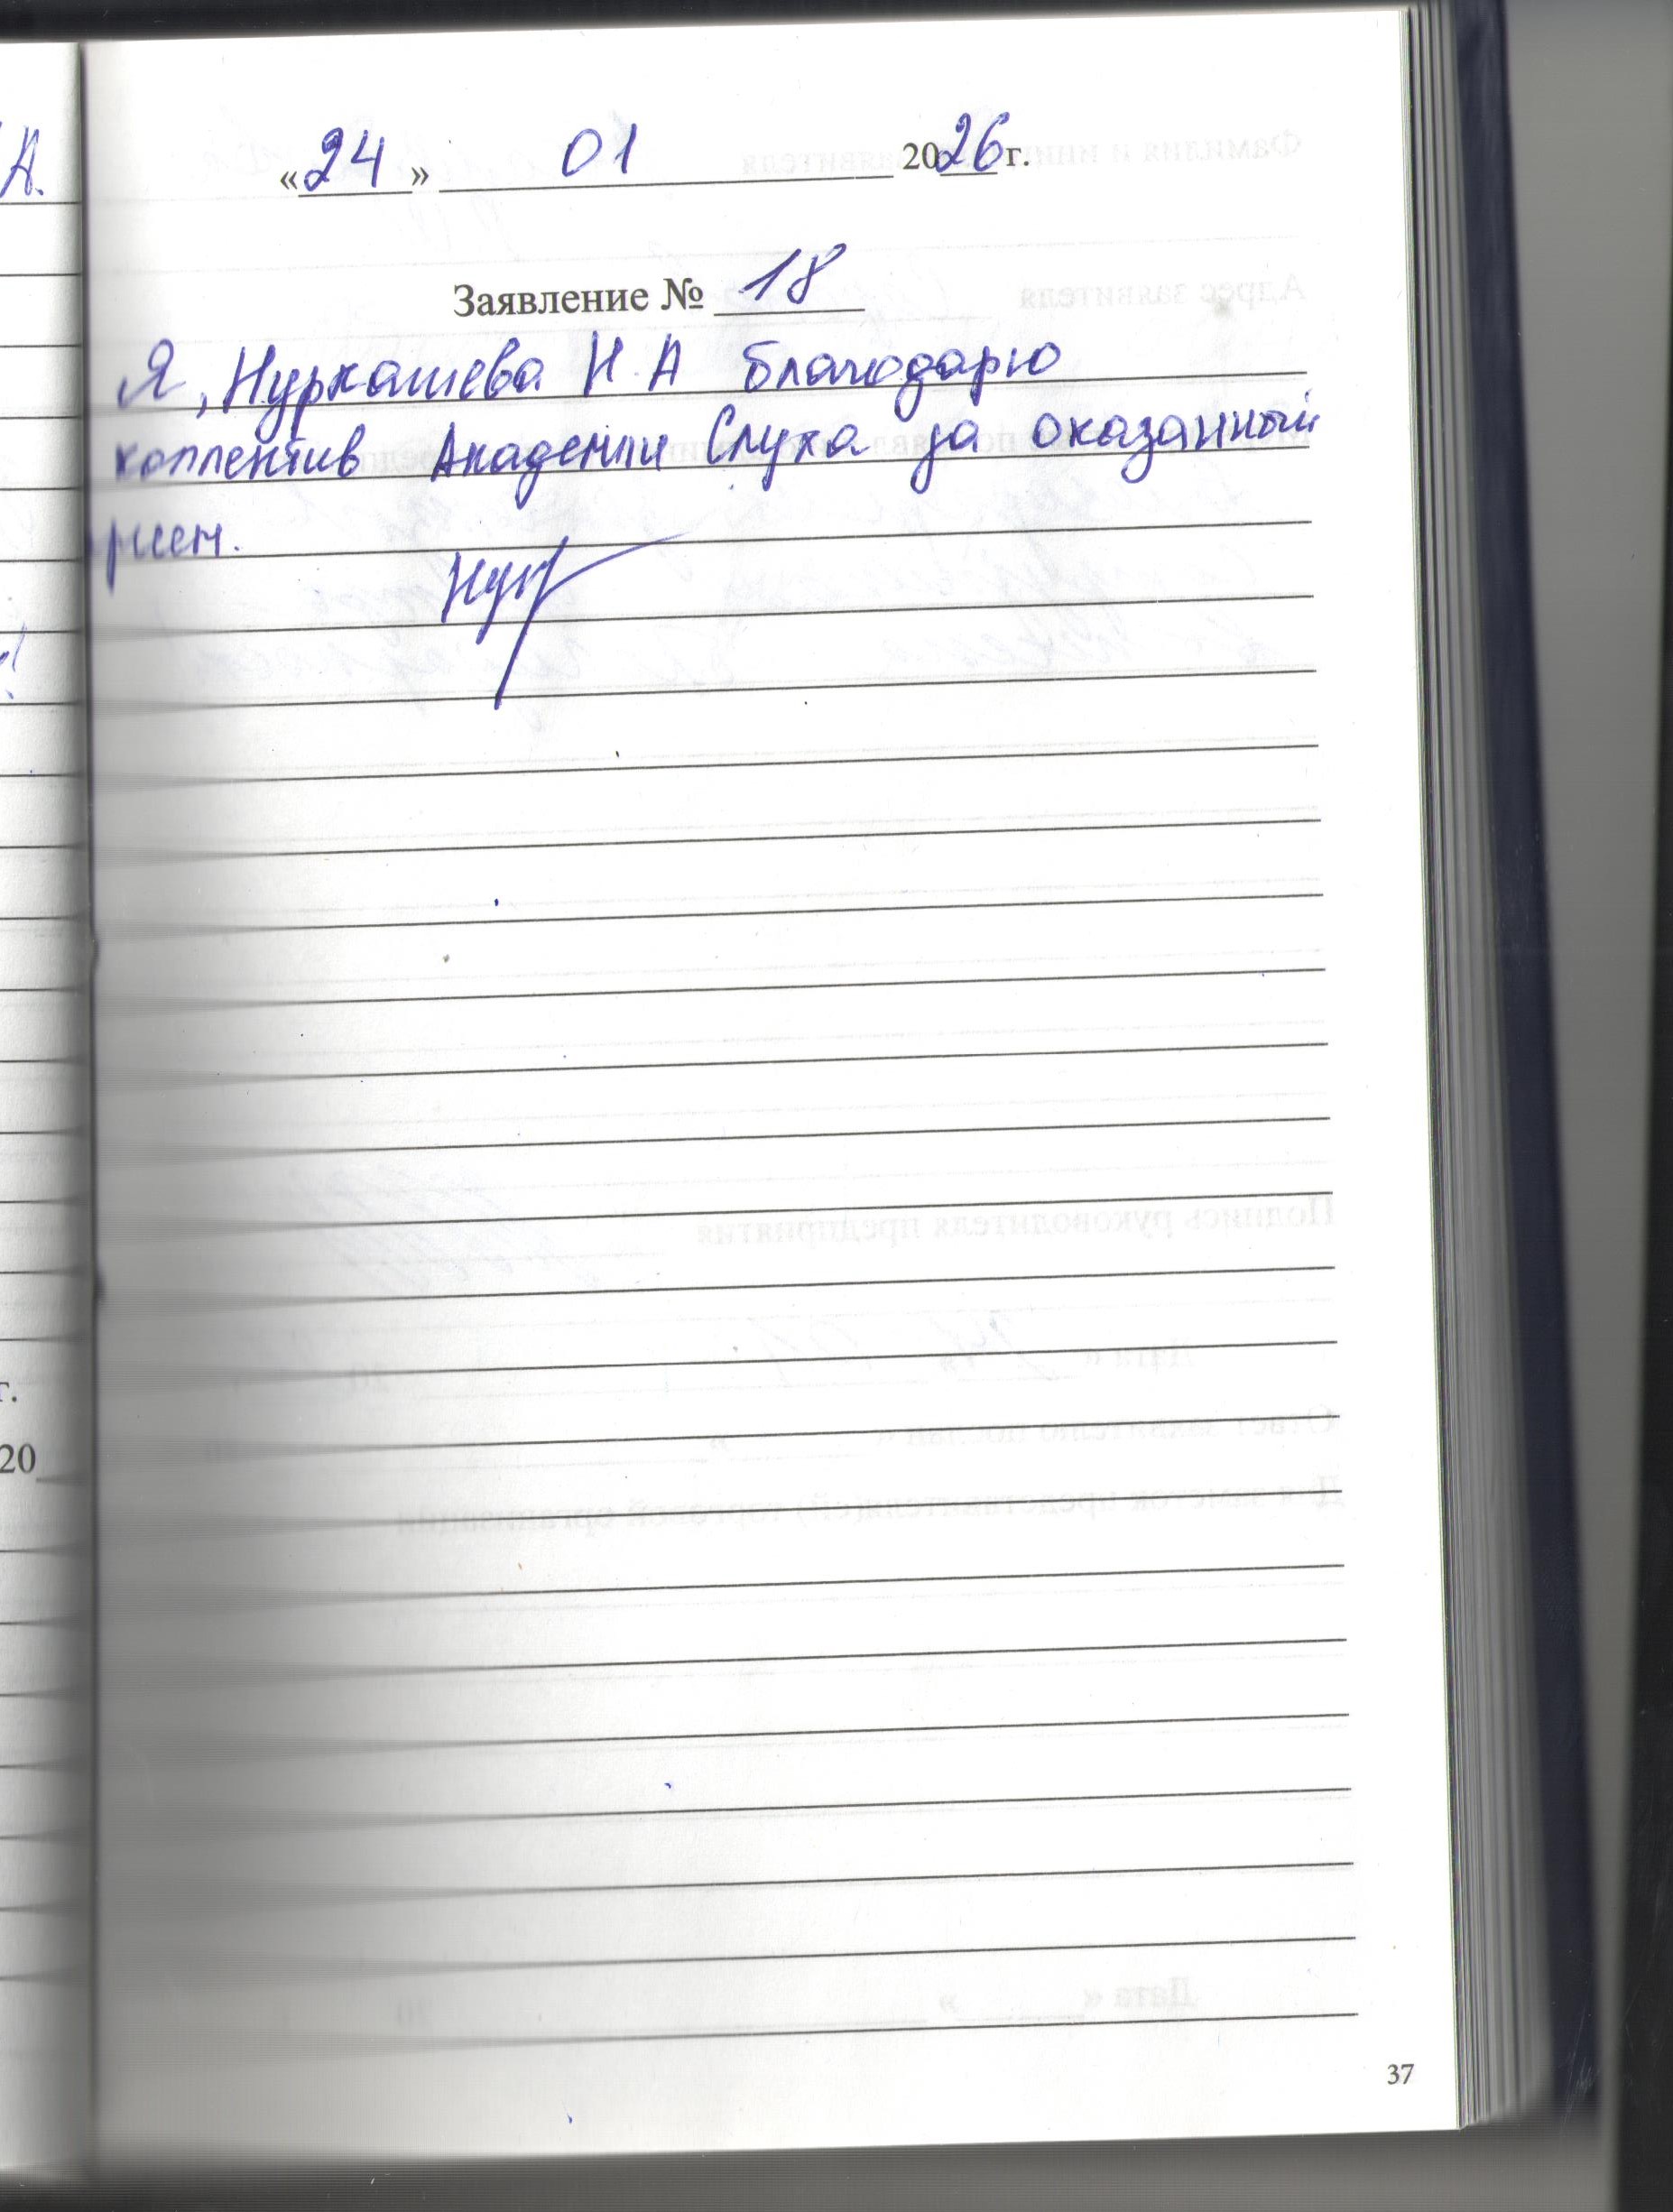 А.
«24» 01 2026 г.
Заявление № 18
Я, Нуркашева Н.А благодарю
коллектив Академии Слуха за оказанный
прием.
Нур
г.
20
37